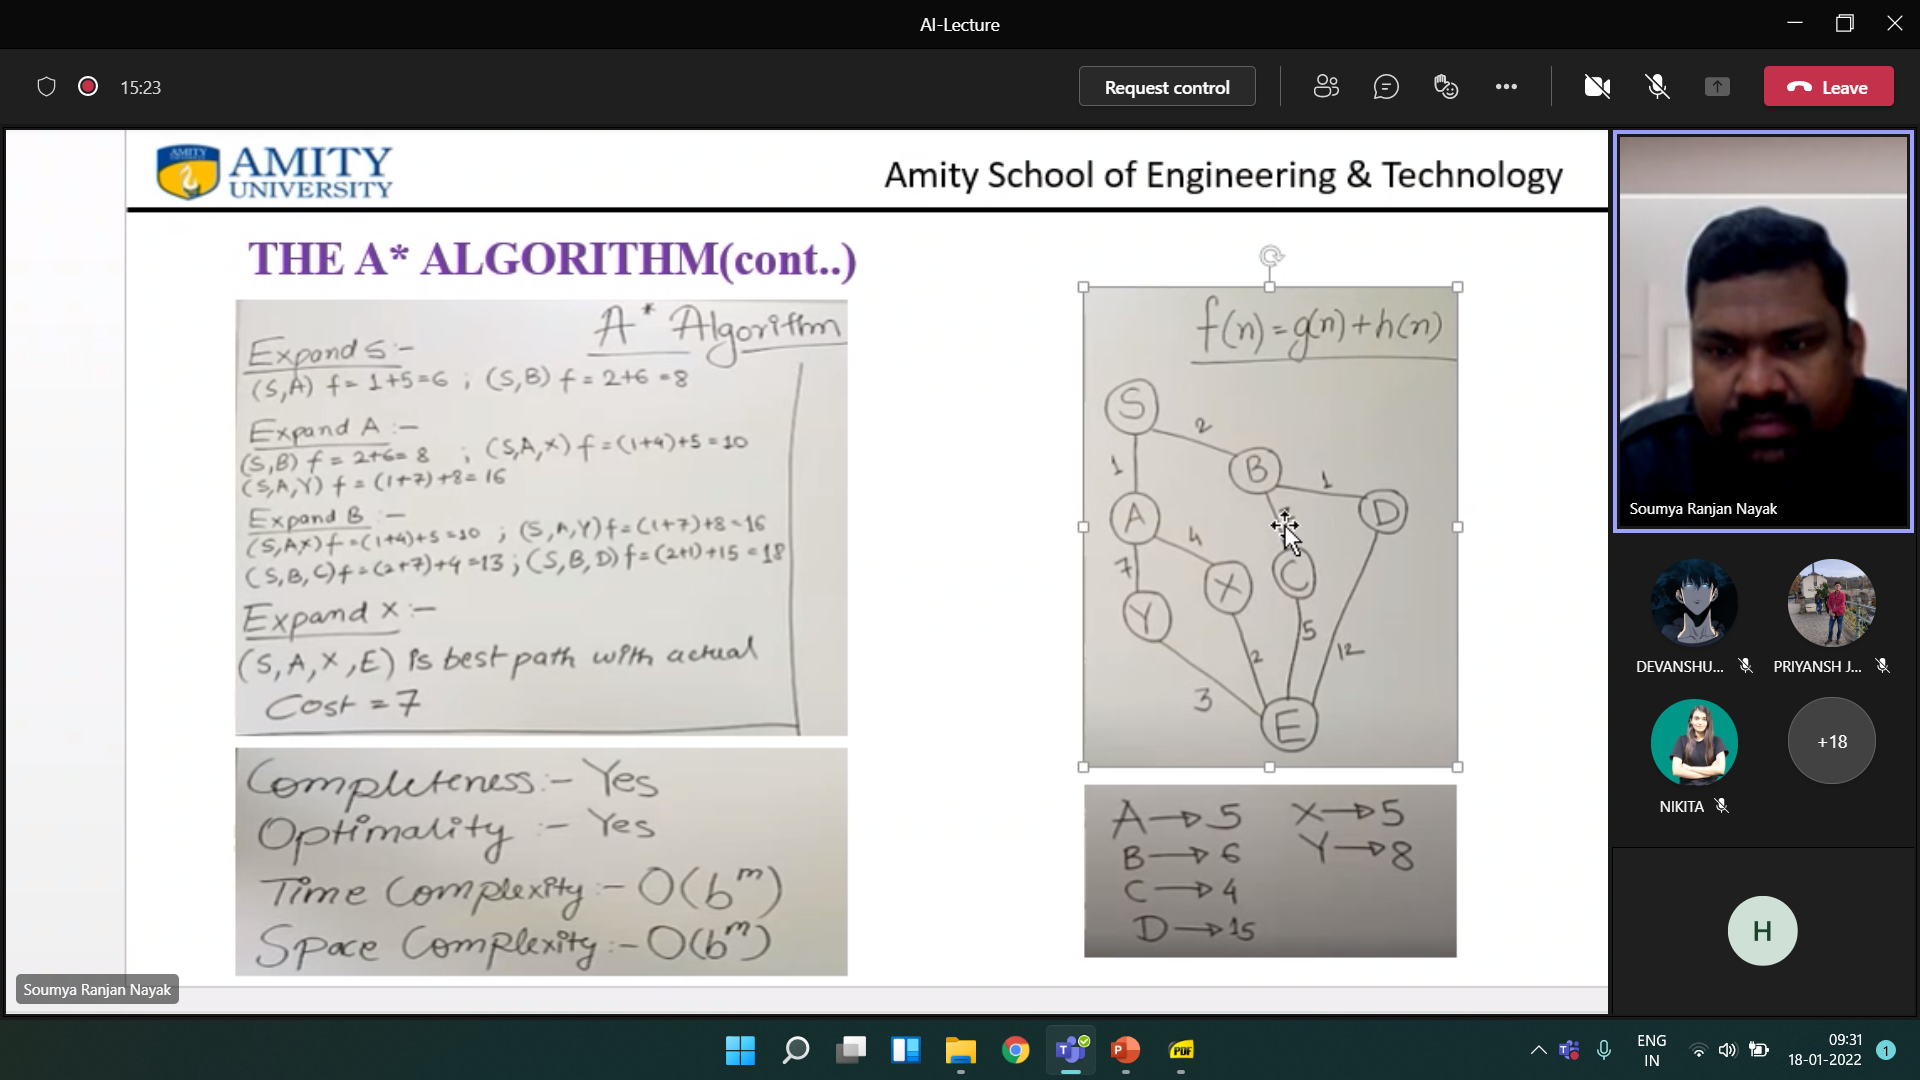 AI-Lecture
15:23
Request control
Leave
AMITY
AMITY
UNIVERSITY
Amity School of Engineering & Technology
THE A* ALGORITHM(cont..)
A* Algorithm
Expand S:-
(S,A) f = 1+5=6 ; (S,B) f = 2+6 =8
Expand A :-
(S,B) f = 2+6= 8 ; (S,A,X) f = (1+4)+5=10
(S,A,Y) f = (1+7)+8=16
Expand B :-
(S,A,X) f = (1+4)+5=10 ; (S,A,Y) f = (1+7)+8=16
(S,B,C) f = (2+7)+4=13 ; (S,B,D) f = (2+1)+15=18
Expand X :-
(S,A,X,E) is best path with actual
Cost = 7
Completeness:- Yes
Optimality :- Yes
Time Complexity:- O(b^m)
Space Complexity:- O(b^m)
f(n)=g(n)+h(n)
S
2
1
B
1
A
D
4
7
X
C
Y
5
2
12
3
E
A→5 X→5
B→6 Y→8
C→4
D→15
Soumya Ranjan Nayak
Soumya Ranjan Nayak
DEVANSHU...
PRIYANSH J...
NIKITA
+18
H
PDF
ENG
IN
09:31
18-01-2022
1